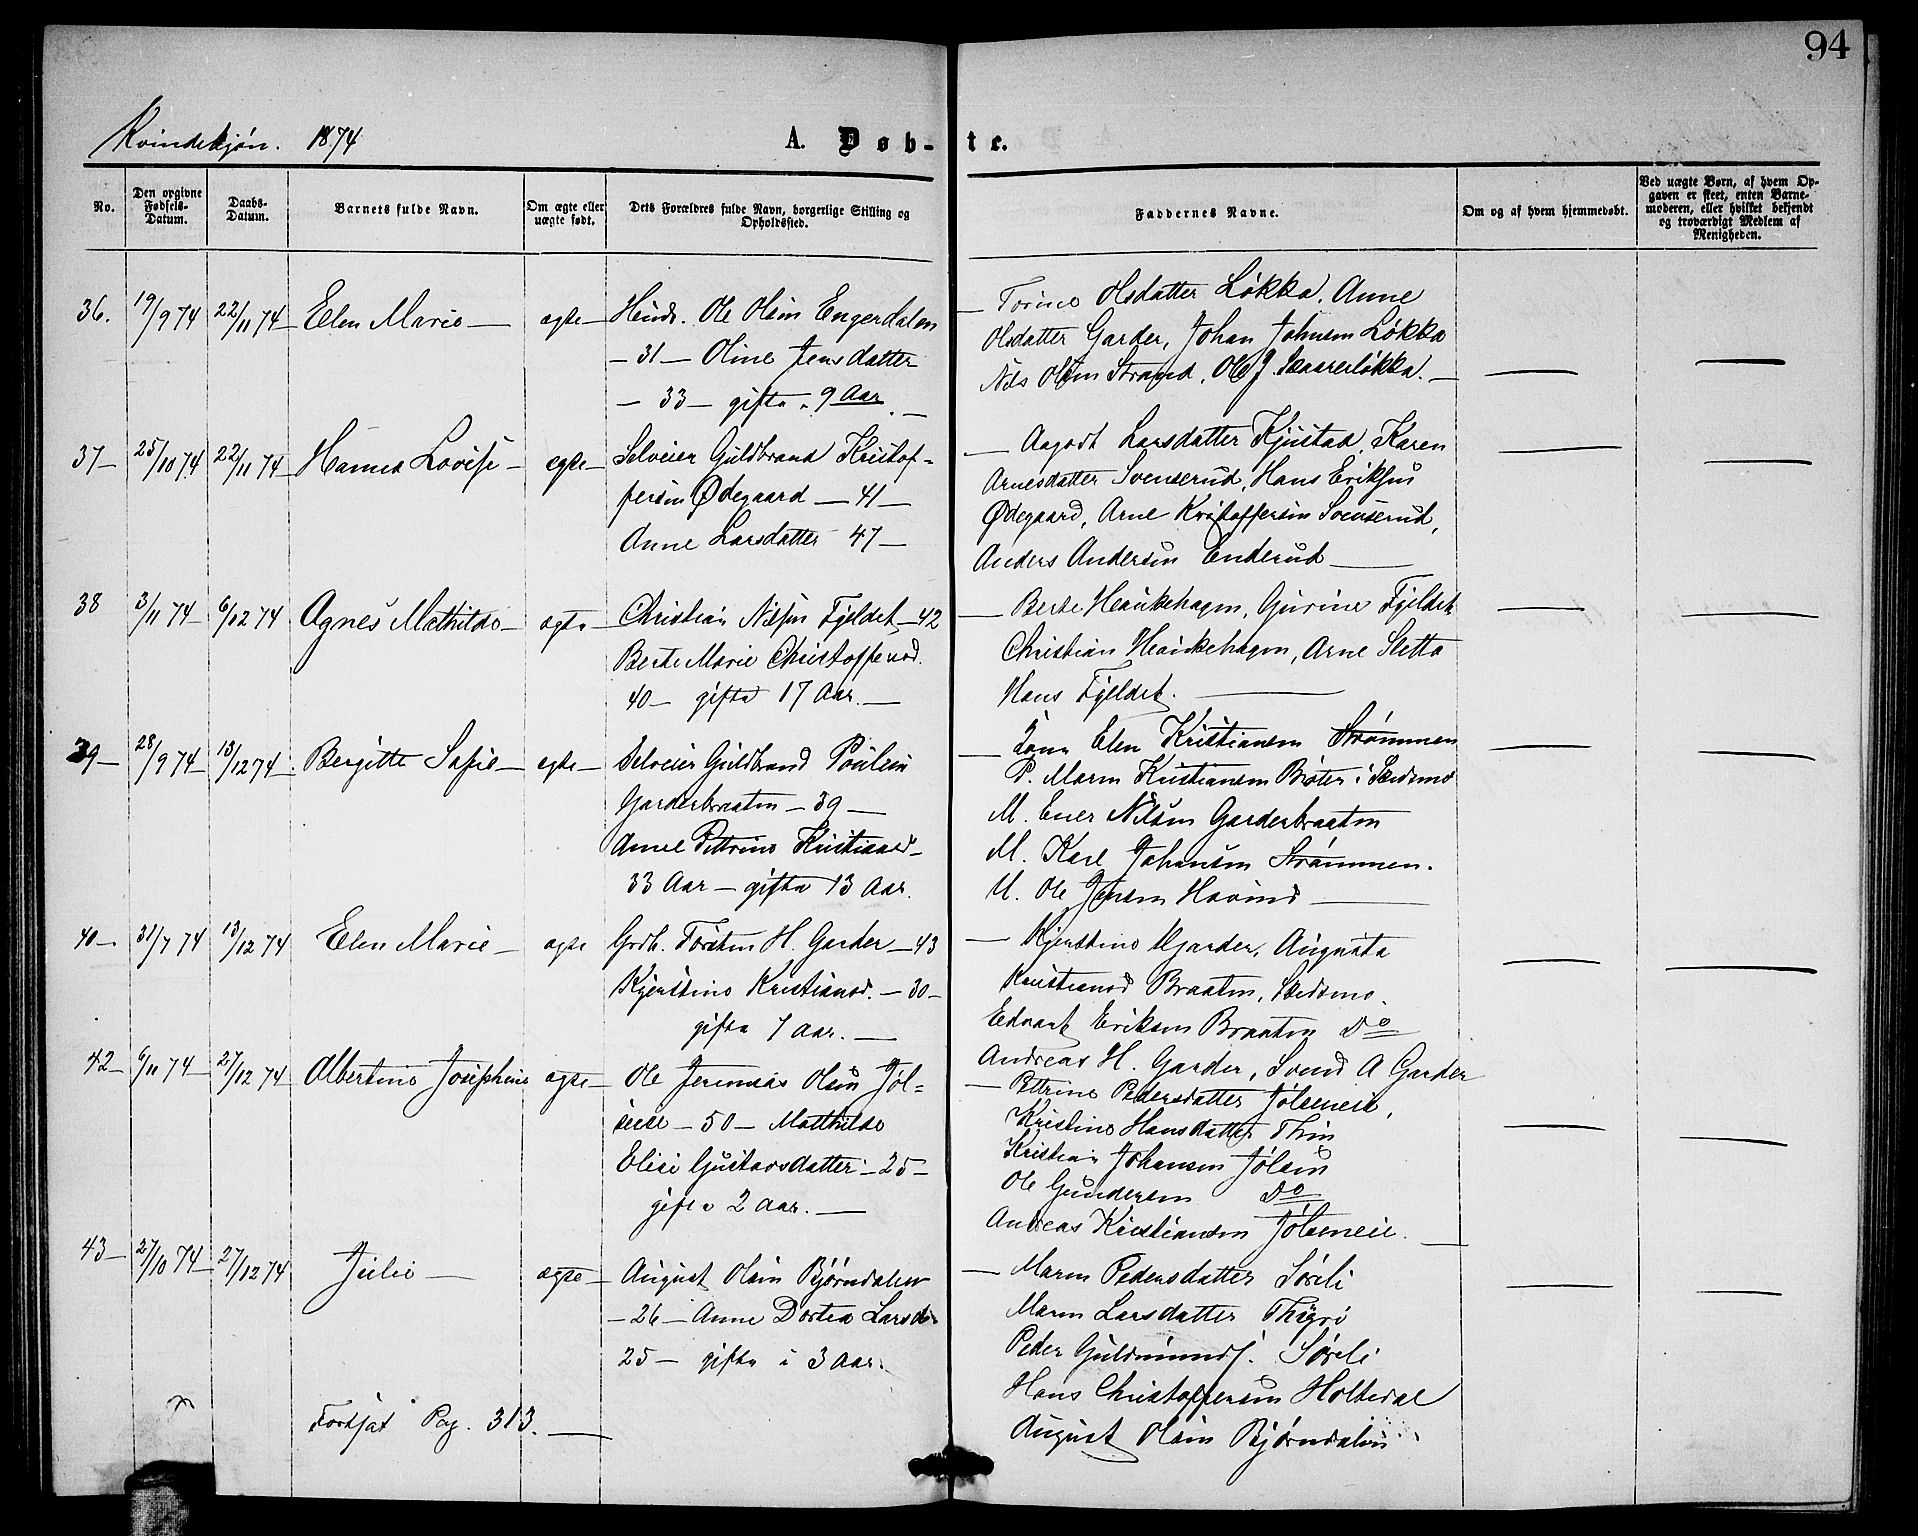 94
Kvindekjøn. 1874 A. Døb- te.
No.
Den opgivne Fødsels-Datum.
Daabs-Datum.
Barnets fulde Navn.
Om ægte eller uægte født.
Dets Forældres fulde Navn, borgerlige Stilling og Opholdssted.
Faddernes Navne.
Om og af hvem hjemmedøbt.
Ved uægte Børn, af hvem Opgaven er skeet, enten Barnemoderen, eller hvilket bekjendt og troværdigt Medlem af Menigheden.
36. 19/9 74 22/11 74 Elen Marie — egte — Huusm. Ole Olsen Engerdalen
— 31 — Oline Jensdatter
— 33 — gifte 9 Aar. —
— Torine Olsdatter Løkka, Anne
Olsdatter Garder, Johan Johnsen Løkka
Nils Olsen Strand, Ole J. Skaarerløkka. —
37 — 25/10 74 22/11 74 Hanna Lovise — egte — Selveier Guldbrand Kristof-
fersen Ødegaard — 41 —
Anne Larsdatter 47 —
— Aagodt Larsdatter Kjustad, Karen
Arnesdatter Svenserud, Hans Eriksen
Ødegaard, Arne Kristoffersen Svenserud,
Anders Andersen Enderud —
38 3/11 74 6/12 74 Agnes Mathilde — egte — Christian Nilsen Fjeldet — 42
Berte Marie Christoffersd.
40 — gifte 17 Aar. —
— Berte Haukehagen, Gurine Fjeldet
Christian Haukehagen, Arne Sletta
Hans Fjeldet. —
39 — 28/9 74 — 13/12 74 Bergitte Sofie — egte — Selveier Guldbrand Poulsen
Garderbraaten — 39 —
Anne Pettrine Kristiansd —
33 Aar — gifte 13 Aar.
— Kone Elen Kristiansen Strømmen
P. Maren Kristiansen Bråten i Skedsmo
M. Ener Nilsen Garderbraaten
M. Karl Johansen Strømmen.
U. Ole Jensen Hovind —
40 — 31/7 74 13/12 74 Elen Marie — egte Grdb. Torsten H. Garder — 43
Kjerstine Kristiansd. — 30 —
gifte 7 Aar. —
— Kjerstine Garder, Augusta
Kristiansd Braaten, Skedsmo.
Edvart Eriksen Braaten Do
Andreas H. Garder, Svend A Garder
42 — 6/11 74 — 27/12 74 Albertine Josephine egte — Ole Jeremias Olsen Jøl-
seie — 50 — Matthilde
Elise Gustavsdatter — 25 —
gifte 2 Aar. —
— Pettrine Pedersdatter Jølsneie,
Kristine Hansdatter Thrin
Kristian Johansen Jølsen
Ole Gundersen Do
Andreas Kristiansen Jølsneie. —
43 — 27/10 74 — 27/12 74 Julie — egte — August Olsen Bjørndalen
— 26 — Anne Dortea Larsd.
25 — gifte i 3 Aar.
— Maren Pedersdatter Sørli
Maren Larsdatter Thygri
Peder Guldmunds. Sørli
Hans Christoffersen Holtedal
August Olsen Bjørndalen
Fortsat Pag. 313. —